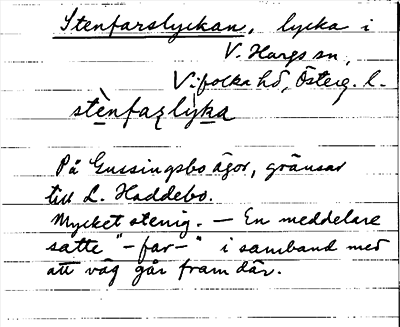 Stenfarslyckan, lycka i
V. Hargs sn,
Vifolka hd, Österg. l.
stènfaʐlỳka
På Gussingsbo ägor, gränsar
till L. Haddebo.
Mycket stenig. — En meddelare
satte "-far-" i samband med
att väg går fram där.